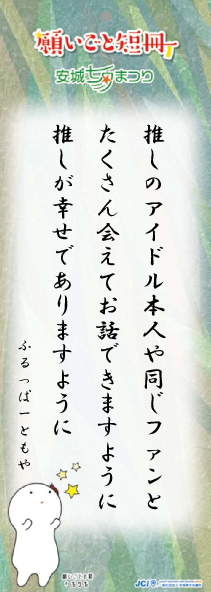 願いごと短冊
安城七夕まつり
推しのアイドル本人や同じファンと
たくさん会えてお話できますように
推しが幸せでありますように
ふるっぱーともや
JCI